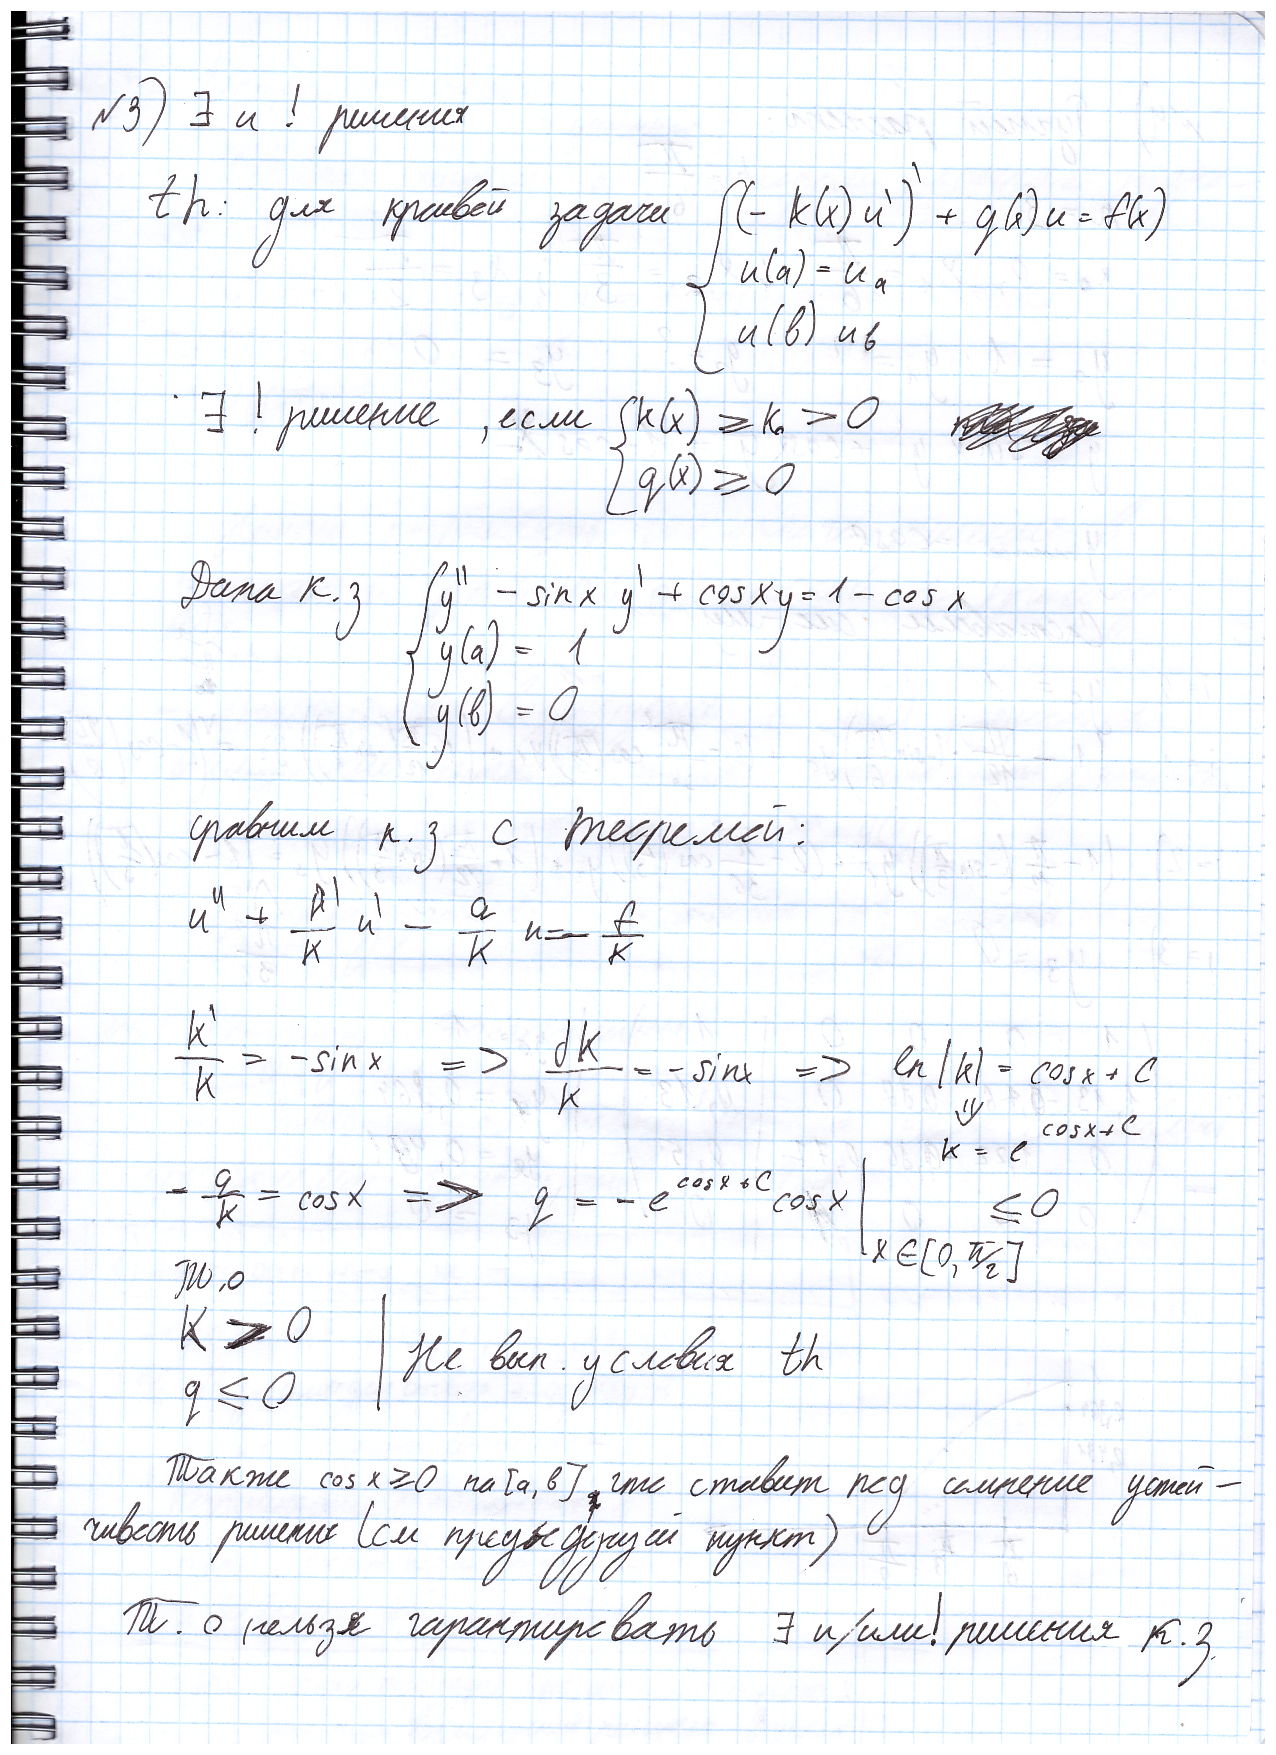 №3) ∃ и ! решения
th: для краевой задачи { (- k(x) u')' + q(x)u = f(x)
u(a) = u_a
u(b) u_b
∃ ! решение , если { k(x) ≥ k₀ > 0
q(x) ≥ 0
Дана к.з { y'' - sinx y' + cosxy = 1 - cosx
y(a) = 1
y(b) = 0
сравним к.з с теоремой:
u'' + k'/k u' - q/k u = - f/k
k'/k = -sinx => dk/k = -sinx => ln|k| = cosx + C
⇓
k = e^{cosx+C}
- q/k = cosx => q = -e^{cosx+C} cosx | x∈[0, π/2] ≤ 0
Т.о
k > 0
q ≤ 0 | Не вып. условия th
Также cosx≥0 на [a,b], что ставит под сомнение устой-
чивость решения (см предыдущий пункт)
Т.о нельзя гарантировать ∃ и/или ! решения к.з.